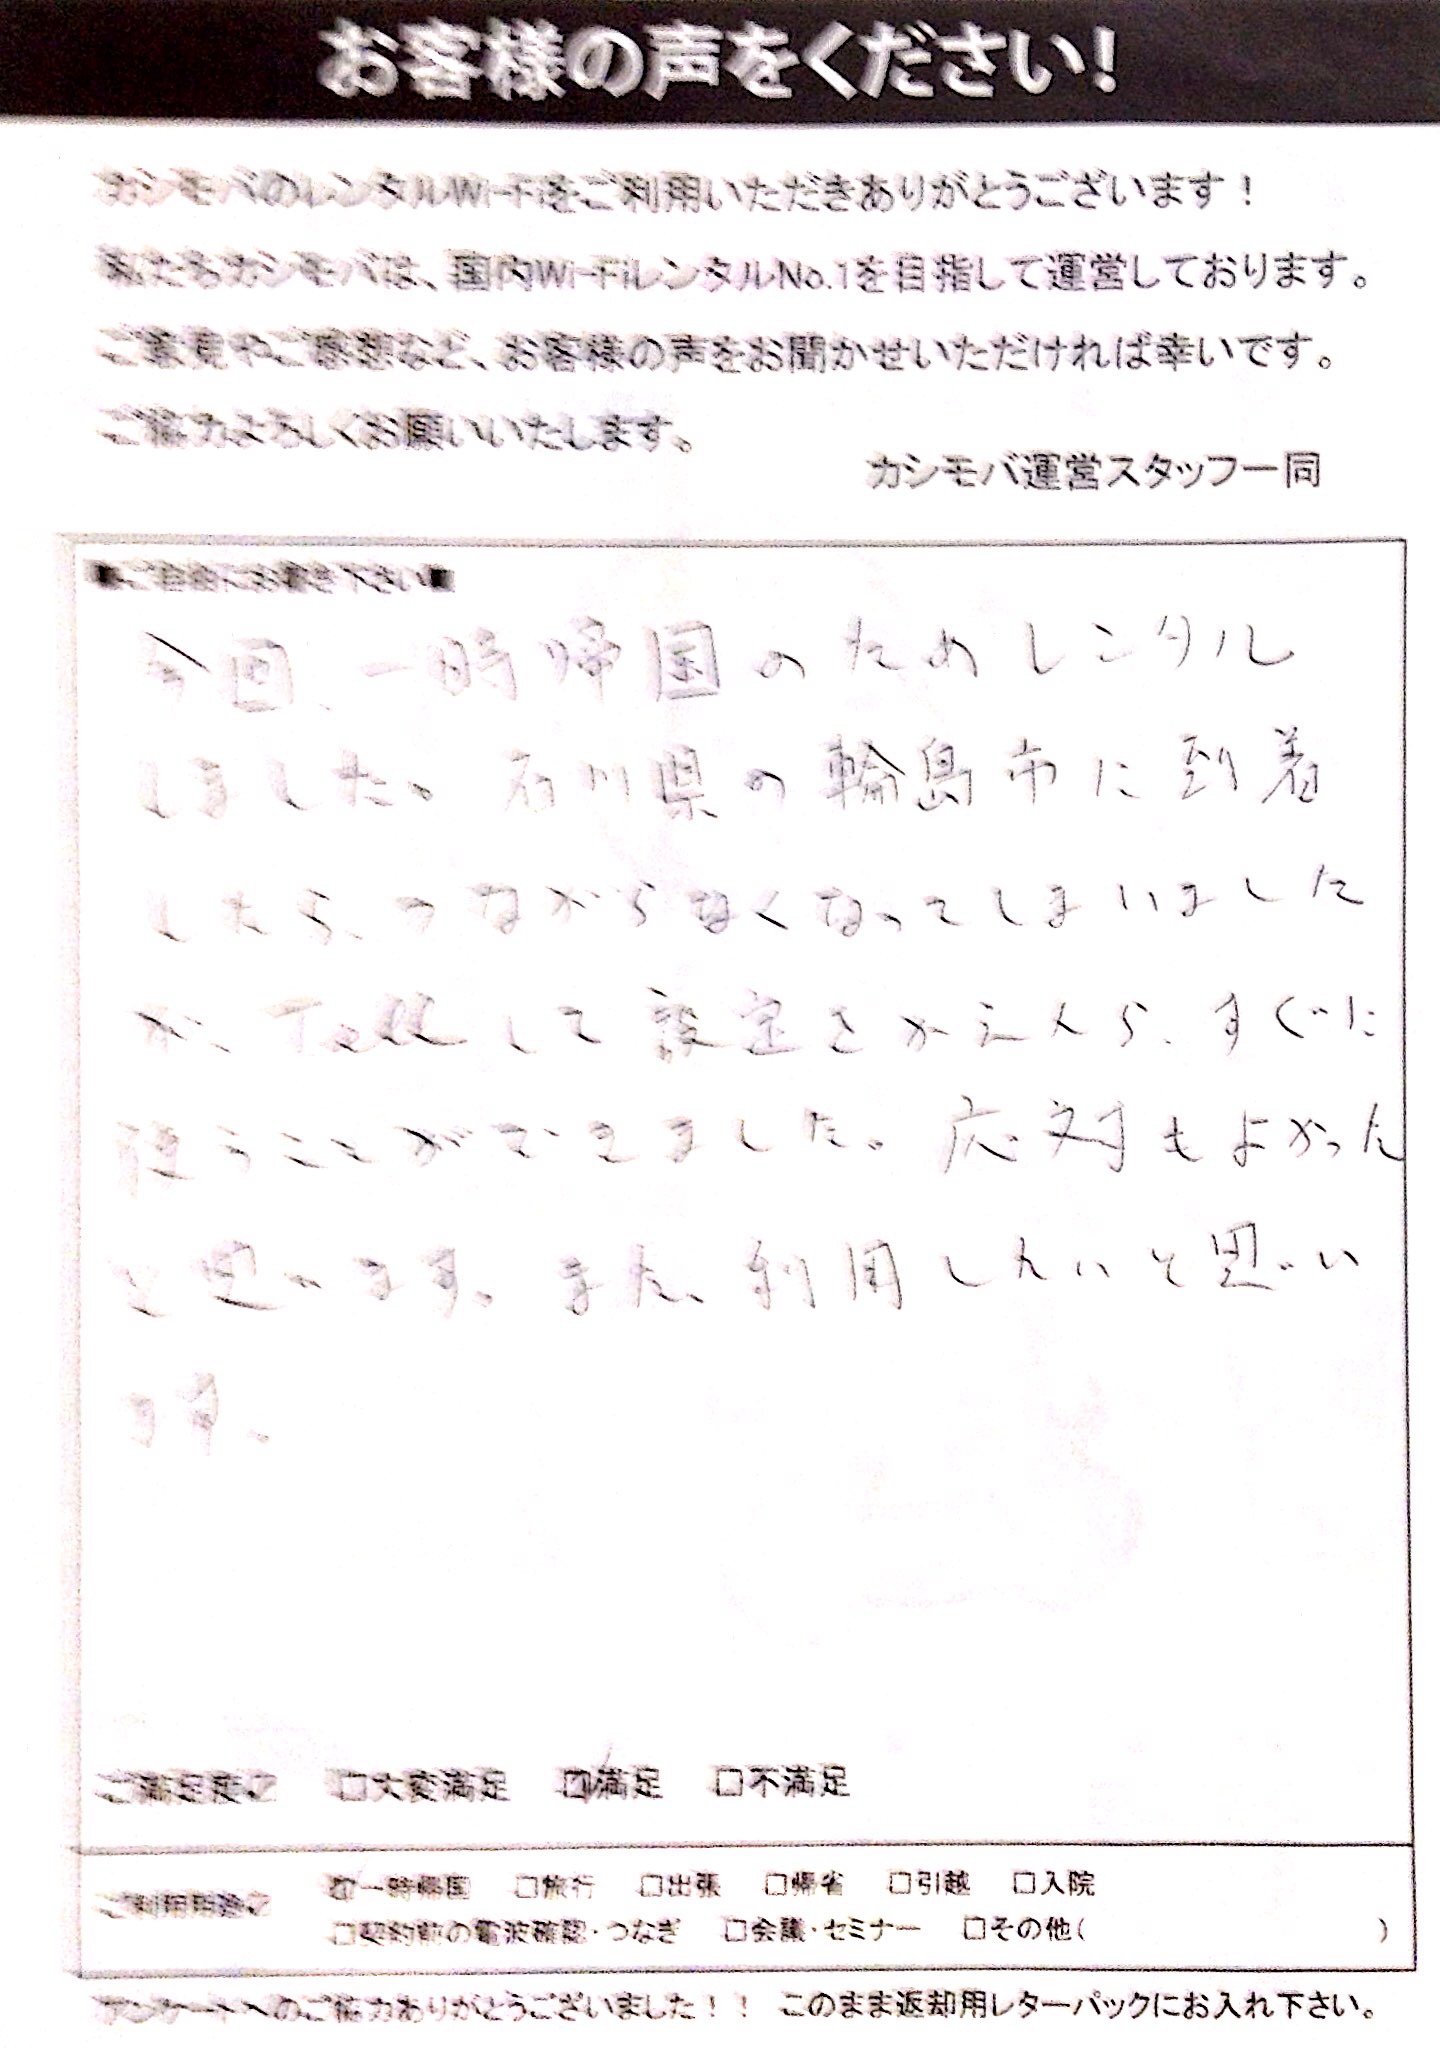 お客様の声をください!
カシモバのレンタルWi-Fiをご利用いただきありがとうございます!
私たちカシモバは、国内Wi-FiレンタルNo.1を目指して運営しております。
ご意見やご感想など、お客様の声をお聞かせいただければ幸いです。
ご協力よろしくお願いいたします。
カシモバ運営スタッフ一同
■ご自由にお書き下さい■
今回、一時帰国のためレンタル
しました。石川県の輪島市に到着
したら、つながらなくなってしまいました
が、Tellして設定をかえたら、すぐに
使うことができました。応対もよかった
と思います。また、利用したいと思い
ます。
ご満足度☑ □大変満足 ☑満足 □不満足
ご利用用途☑ ☑一時帰国 □旅行 □出張 □帰省 □引越 □入院
□契約前の電波確認・つなぎ □会議・セミナー □その他( )
アンケートへのご協力ありがとうございました!! このまま返却用レターパックにお入れ下さい。